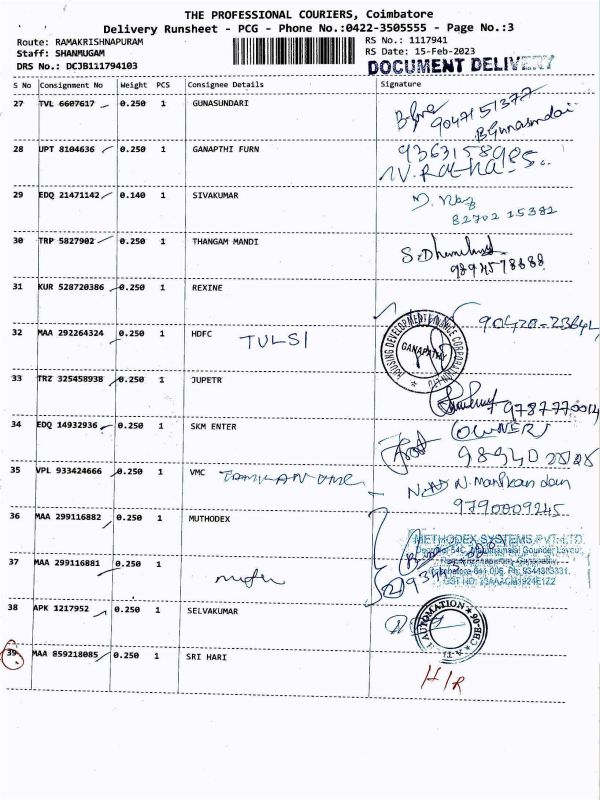 THE PROFESSIONAL COURIERS, Coimbatore
Delivery Runsheet - PCG - Phone No.:0422-3505555 - Page No.:3
Route: RAMAKRISHNAPURAM
Staff: SHANMUGAM
DRS No.: DCJB111794103
RS No.: 1117941
RS Date: 15-Feb-2023
DOCUMENT DELIVERY
S No Consignment No Weight PCS Consignee Details Signature
27 TVL 6607617 0.250 1 GUNASUNDARI
9047151377
B Gunasundai
28 UPT 8104636 0.250 1 GANAPTHI FURN
9363158985
29 EDQ 21471142 0.140 1 SIVAKUMAR
82702 15382
30 TRP 5827902 0.250 1 THANGAM MANDI
9894578888
31 KUR 528720386 0.250 1 REXINE
32 MAA 292264324 0.250 1 HDFC TULSI
HOUSING DEVELOPMENT FINANCE CORPORATION LTD
GANAPATHY
33 TRZ 325458938 0.250 1 JUPETR
9787770014
34 EDQ 14932936 0.250 1 SKM ENTER
OWNER
35 VPL 933424666 0.250 1 VMC
N. Manikandan
9790009245
36 MAA 299116882 0.250 1 MUTHODEX
METHODEX SYSTEMS PVT. LTD.
37 MAA 299116881 0.250 1
38 APK 1217952 0.250 1 SELVAKUMAR
AUTOMATION
39 MAA 859218085 0.250 1 SRI HARI
H/R